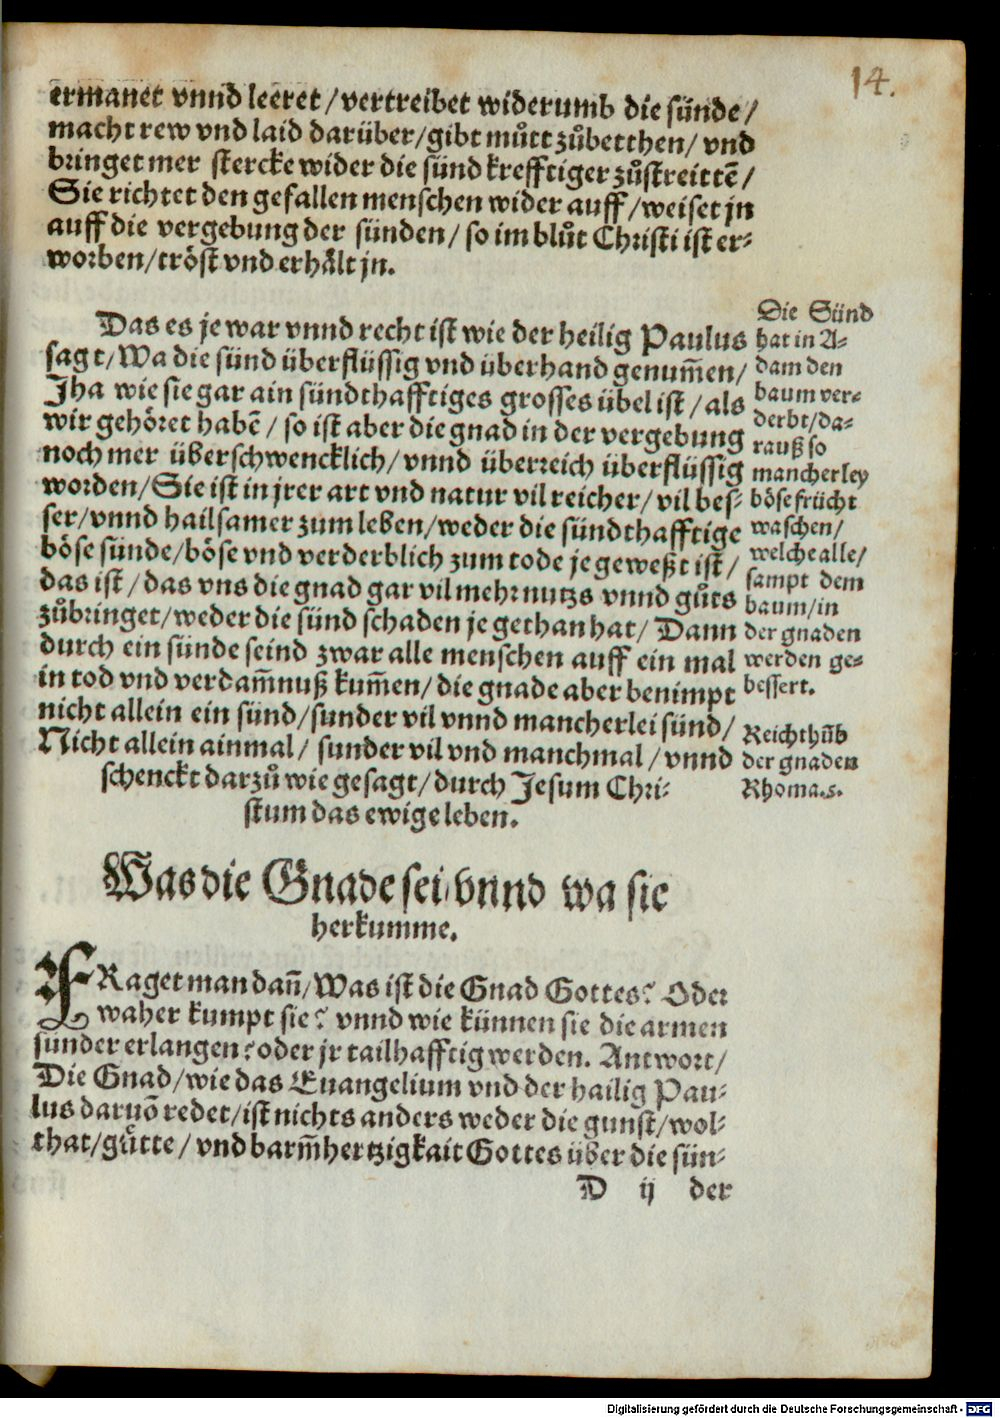 14.
ermanet vnnd leeret / vertreibet widerumb die sünde /
macht rew vnd laid darüber / gibt můtt zůbetthen / vnd
bringet mer stercke wider die sünd krefftiger zůstreittē /
Sie richtet den gefallen menschen wider auff / weiset jn
auff die vergebung der sünden / so im blůt Christi ist er⸗
worben / tröst vnd erhålt jn.
Das es je war vnnd recht ist wie der heilig Paulus
sagt / Wa die sünd überflüssig vnd überhand genum̄en /
Jha wie sie gar ain sündthafftiges grosses übel ist / als
wir gehöret habē / so ist aber die gnad in der vergebung
noch mer überschwencklich / vnnd überreich überflüssig
worden / Sie ist in jrer art vnd natur vil reicher / vil bes⸗
ser / vnnd hailsamer zum leben / weder die sündthafftige
böse sünde / böse vnd verderblich zum tode je geweßt ist /
das ist / das vns die gnad gar vil mehr nutzs vnnd gůts
zůbringet / weder die sünd schaden je gethan hat / Dann
durch ein sünde seind zwar alle menschen auff ein mal
in tod vnd verdam̄nuß kum̄en / die gnade aber benimpt
nicht allein ein sünd / sunder vil vnnd mancherlei sünd /
Nicht allein ainmal / sunder vil vnd manchmal / vnnd
schenckt darzů wie gesagt / durch Jesum Chri⸗
stum das ewige leben.
Die Sünd
hat in A⸗
dam den
baum ver⸗
derbt / da⸗
rauß so
mancherley
böse frücht
waschen /
welche alle /
sampt dem
baum / in
der gnaden
werden ge⸗
bessert.
Reichthūb
der gnaden
Rhoma.5.
Was die Gnade sei / vnnd wa sie
herkumme.
FRaget man dañ / Was ist die Gnad Gottes? Oder
waher kumpt sie? vnnd wie künnen sie die armen
sünder erlangen? oder jr tailhafftig werden. Antwort /
Die Gnad / wie das Euangelium vnd der hailig Pau⸗
lus daruō redet / ist nichts anders weder die gunst / wol⸗
that / gůtte / vnd barm̄hertzigkait Gottes über die sün⸗
D ij der
Digitalisierung gefördert durch die Deutsche Forschungsgemeinschaft - DFG